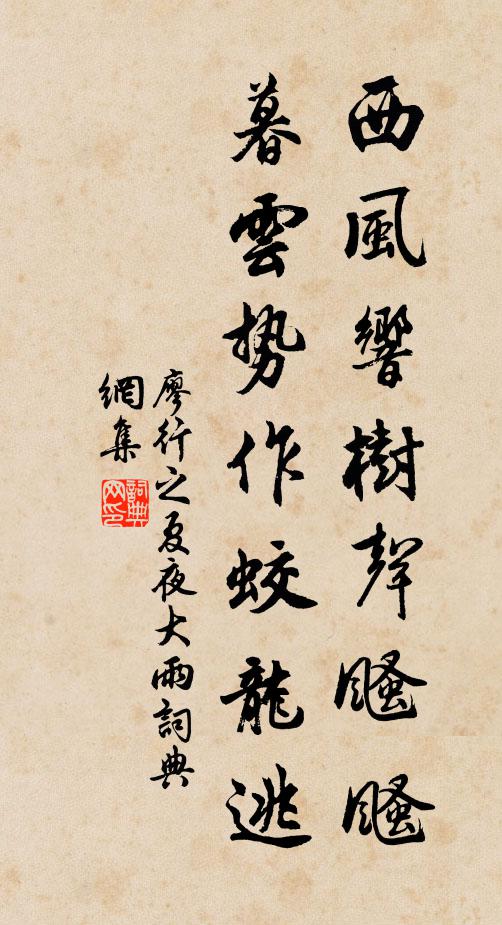 西風響樹聲颾颾
暮雲勢作蛟龍逃
廖行之夏夜大雨詞典
網集
詞典網印